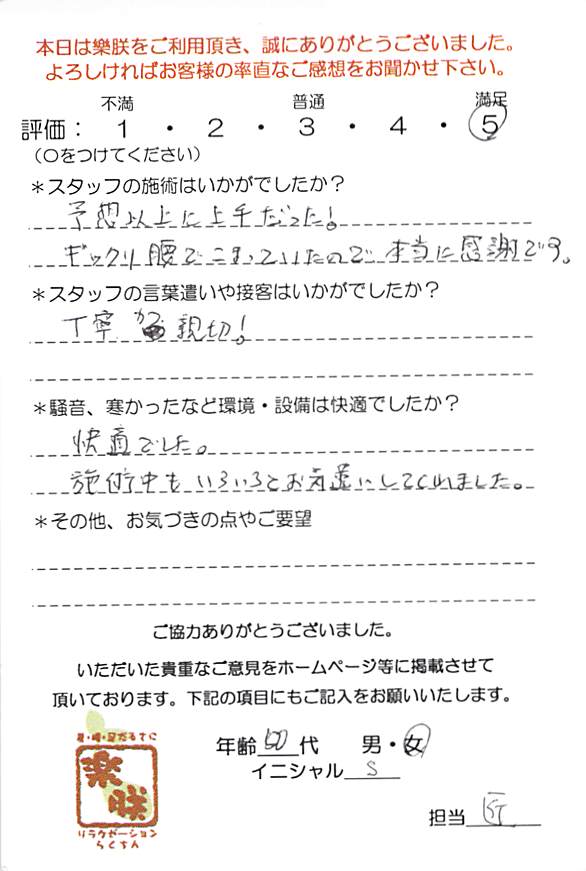 本日は樂朕をご利用頂き、誠にありがとうございました。
よろしければお客様の率直なご感想をお聞かせ下さい。
不満 普通 満足
評価： 1 ・ 2 ・ 3 ・ 4 ・ 5
（○をつけてください）
＊スタッフの施術はいかがでしたか？
予想以上に上手だった！
ギックリ腰でこまっていたので、本当に感謝です。
＊スタッフの言葉遣いや接客はいかがでしたか？
丁寧かつ親切！
＊騒音、寒かったなど環境・設備は快適でしたか？
快適でした。
施術中もいろいろとお気遣いしてくれました。
＊その他、お気づきの点やご要望
ご協力ありがとうございました。
いただいた貴重なご意見をホームページ等に掲載させて
頂いております。下記の項目にもご記入をお願いいたします。
年齢 代 男・女
イニシャル S
担当
楽朕
リラクゼーション
らくちん